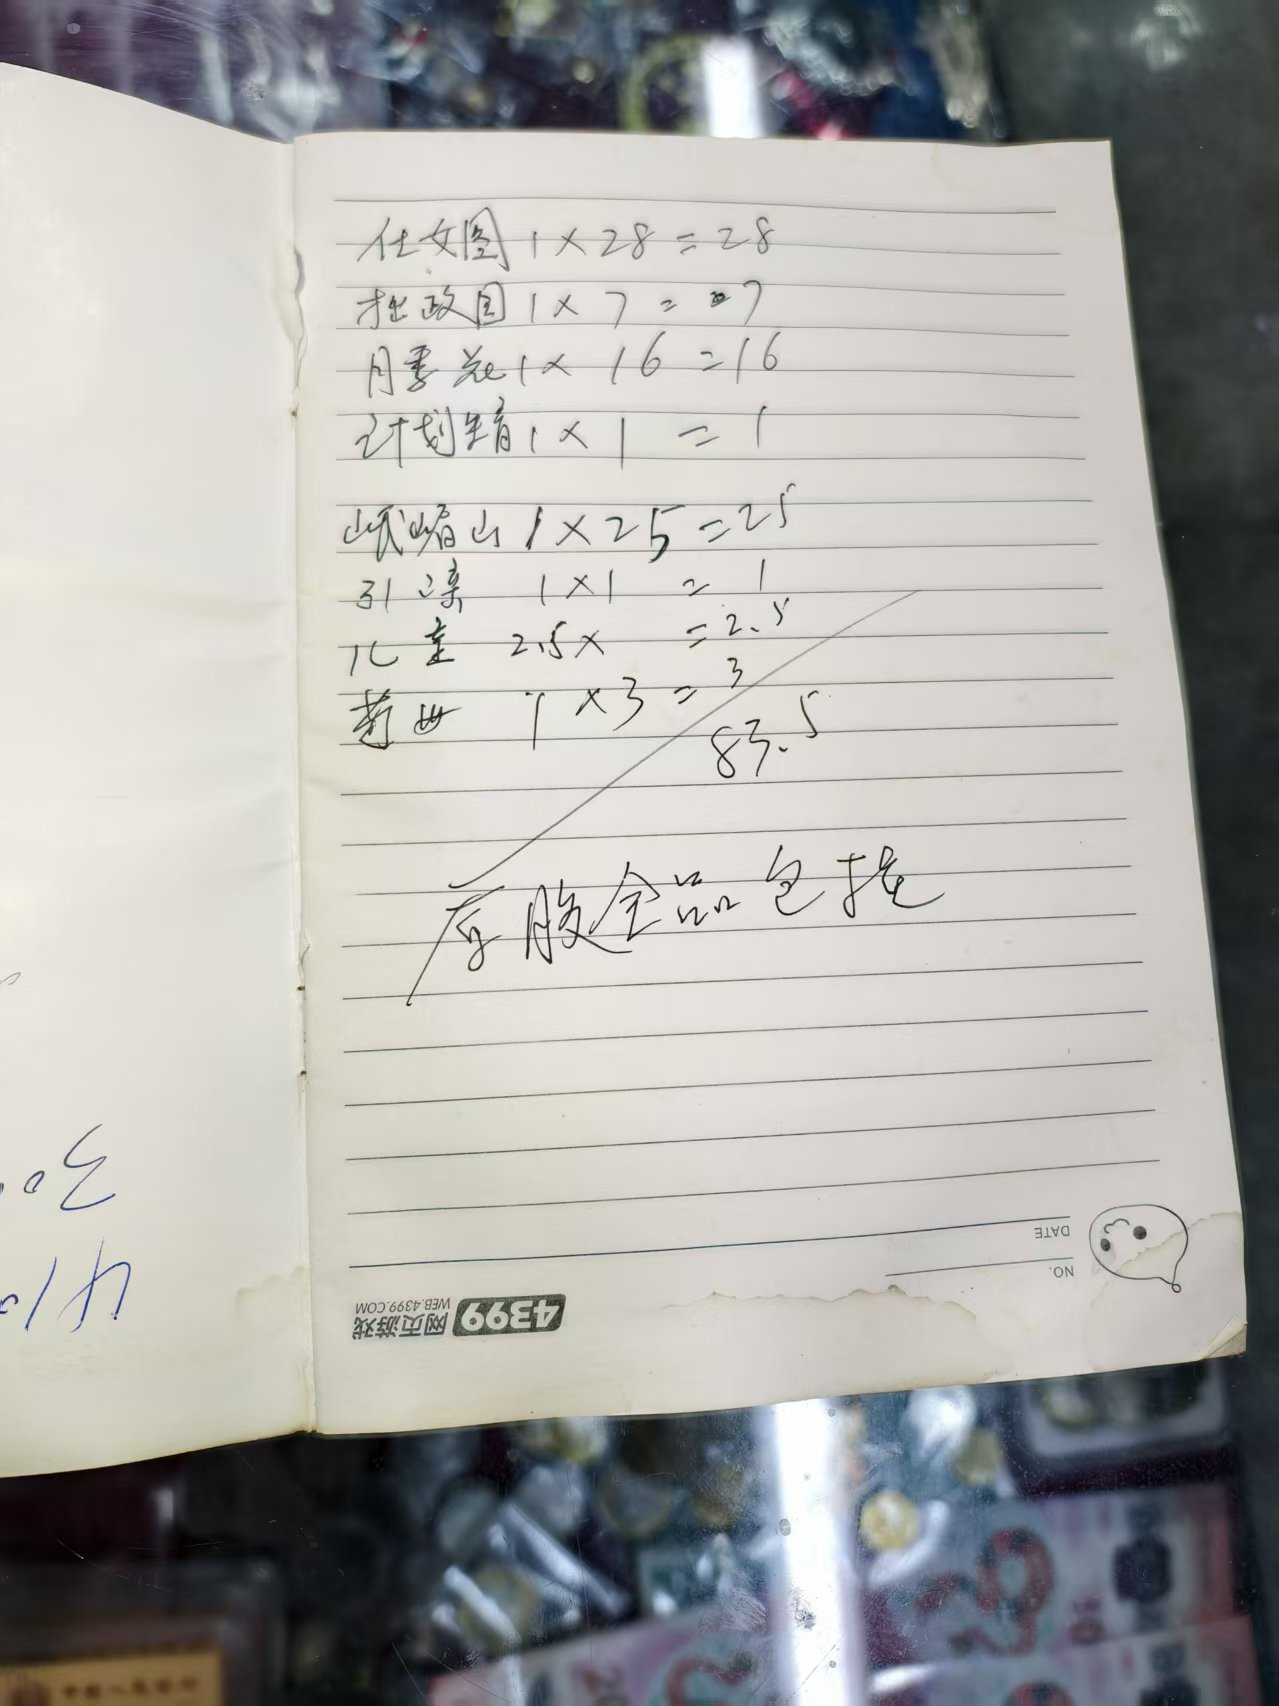 仕女图 1×28=28
拙政园 1×7=7
月季花 1×16=16
计划生育 1×1=1
峨嵋山 1×25=25
引滦 1×1=1
儿童 2.5×=2.5
1×3=3
83.5
后胶全品包挂
30.
410
DATE
NO.
4399 网页游戏
WEB.4399.COM